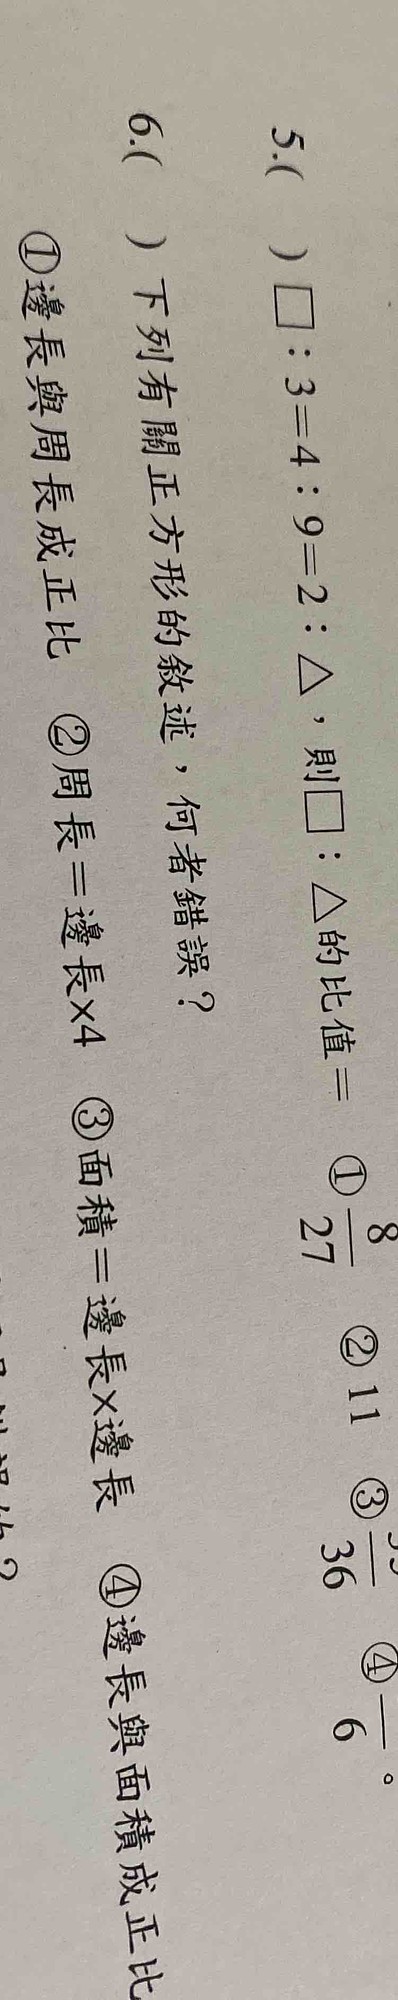 5.(　) □：3＝4：9＝2：△，則□：△的比值＝ ①8/27 ②11 ③/36 ④/6 。
6.(　) 下列有關正方形的敘述，何者錯誤？
①邊長與周長成正比 ②周長＝邊長×4 ③面積＝邊長×邊長 ④邊長與面積成正比